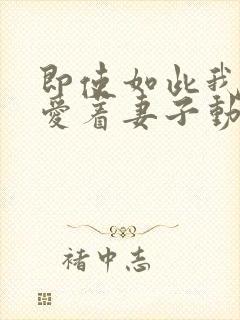 即使如此我
愛着妻子動
褚中志